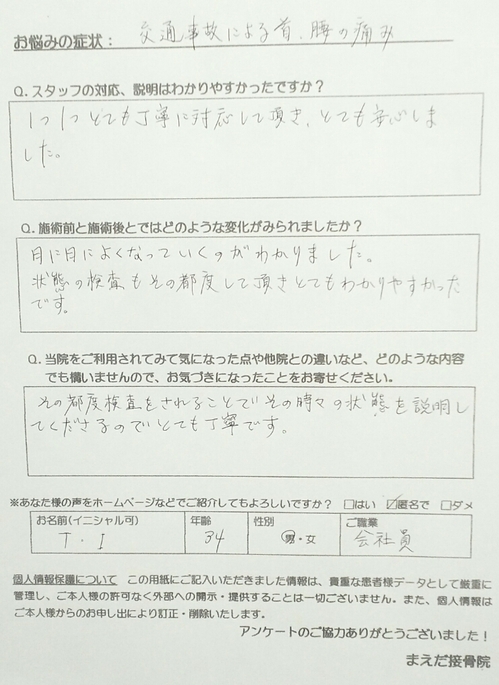 お悩みの症状： 交通事故による首、腰の痛み
Q. スタッフの対応、説明はわかりやすかったですか？
1つ1つとても丁寧に対応して頂き、とても安心しま
した。
Q. 施術前と施術後とではどのような変化がみられましたか？
日に日によくなっていくのがわかりました。
状態の検査もその都度して頂きとてもわかりやすかった
です。
Q. 当院をご利用されてみて気になった点や他院との違いなど、どのような内容
でも構いませんので、お気づきになったことをお寄せください。
その都度検査をされることでその時々の状態を説明し
てくださるのでとても丁寧です。
※あなた様の声をホームページなどでご紹介してもよろしいですか？ □はい ☑匿名で □ダメ
お名前(イニシャル可) 年齢 性別 ご職業
T・I 34 男・女 会社員
個人情報保護について この用紙にご記入いただきました情報は、貴重な患者様データとして厳重に
管理し、ご本人様の許可なく外部への開示・提供することは一切ございません。また、個人情報は
ご本人様からのお申し出により訂正・削除いたします。
アンケートのご協力ありがとうございました！
まえだ接骨院